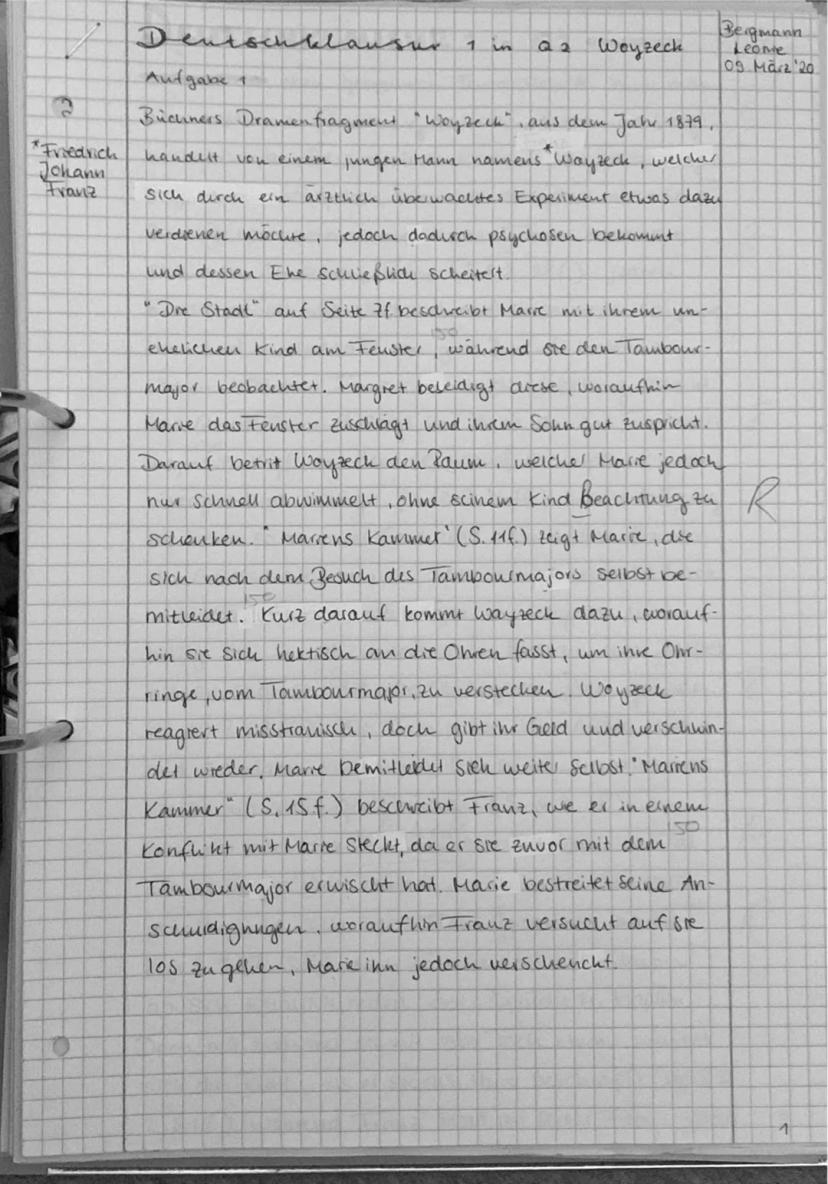 Deutschklausur 1 in Q2 Woyzeck
Bergmann
Leonie
09 März '20
Aufgabe 1
Büchners Dramenfragment "Woyzeck", aus dem Jahr 1879,
*Friedrich
Johann
Franz
handelt von einem jungen Mann namens *Woyzeck, welcher
sich durch ein ärztlich überwachtes Experiment etwas dazu
verdienen möchte, jedoch dadurch psychosen bekommt
und dessen Ehe schließlich scheitert.
"Die Stadt" auf Seite 7f beschreibt Marie mit ihrem un-
ehelichen Kind am Fenster, während sie den Tambour-
150
major beobachtet. Margret beleidigt diese, woraufhin
Marie das Fenster zuschlägt und ihrem Sohn gut zuspricht.
Darauf betrit Woyzeck den Raum, welcher Marie jedoch
nur schnell abwimmelt, ohne seinem Kind Beachtung zu
R
schenken. "Mariens Kammer" (S. 11f.) zeigt Marie, die
sich nach dem Besuch des Tambourmajors selbst be-
150
mitleidet. Kurz darauf kommt Woyzeck dazu, worauf-
hin sie sich hektisch an die Ohren fasst, um ihre Ohr-
ringe, vom Tambourmajor, zu verstecken. Woyzeck
reagiert misstrauisch, doch gibt ihr Geld und verschwin-
det wieder. Marie bemitleidet sich weiter selbst. "Mariens
Kammer" (S. 15f.) beschreibt Franz, wie er in einem
Konflikt mit Marie steckt, da er sie zuvor mit dem
150
Tambourmajor erwischt hat. Marie bestreitet seine An-
schuldigungen, woraufhin Franz versucht auf sie
los zu gehen, Marie ihn jedoch verscheucht.
1